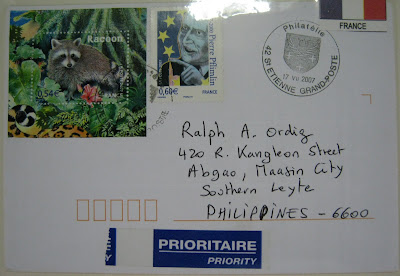 Racoon
0,54€
Pierre Pflimlin
0,60€
FRANCE
Philatélie
42 St ETIENNE GRAND-POSTE
17 VII 2007
Ralph A. Ordiz
420 R. Kangleon Street
Abgao, Maasin City
Southern Leyte
PHILIPPINES - 6600
PRIORITAIRE
PRIORITY